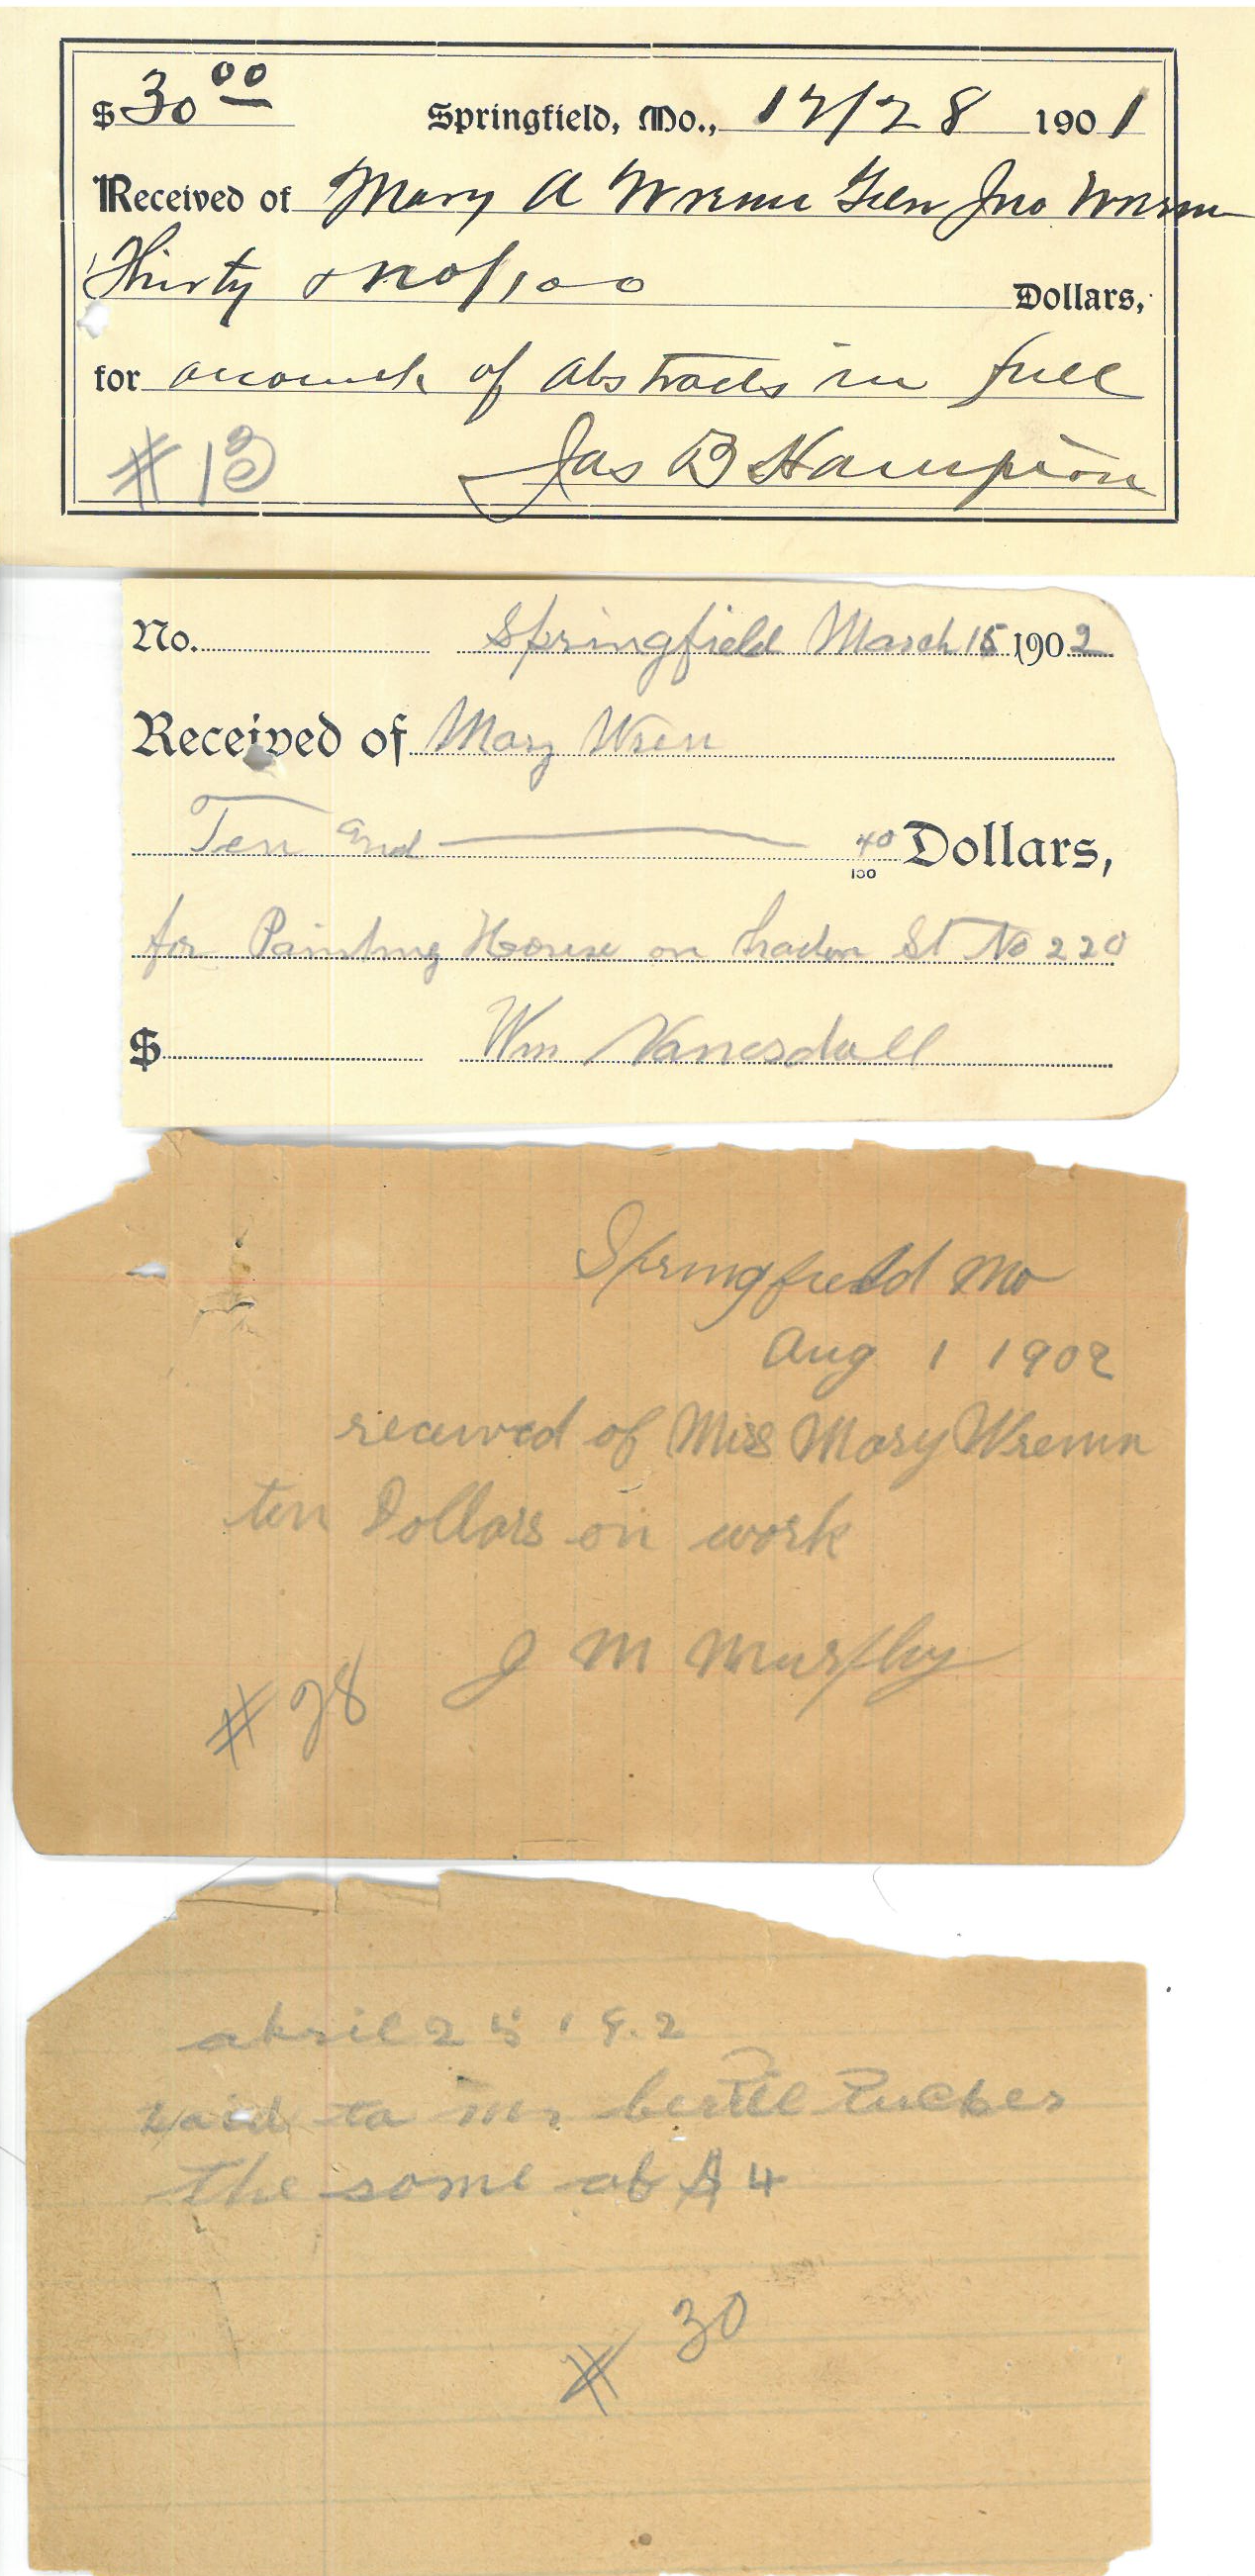 $30.00 Springfield, Mo., 12/28 1901
Received of Mary A Wrenn Jno Wrenn
Thirty & no/100 Dollars,
for account of abstracts in full
#13 Jas B Hampton
No. Springfield March 15 1902
Received of Mary Wren
Ten and 40/100 Dollars,
for Painting House on St No 220
$ Wm Vanesdall
Springfield Mo
Aug 1 1902
received of Miss Mary Wrenn
ten Dollars on work
J M Murphy
#28
april 25 19.2
paid to mr bertie tucker
the some of $4
# 30